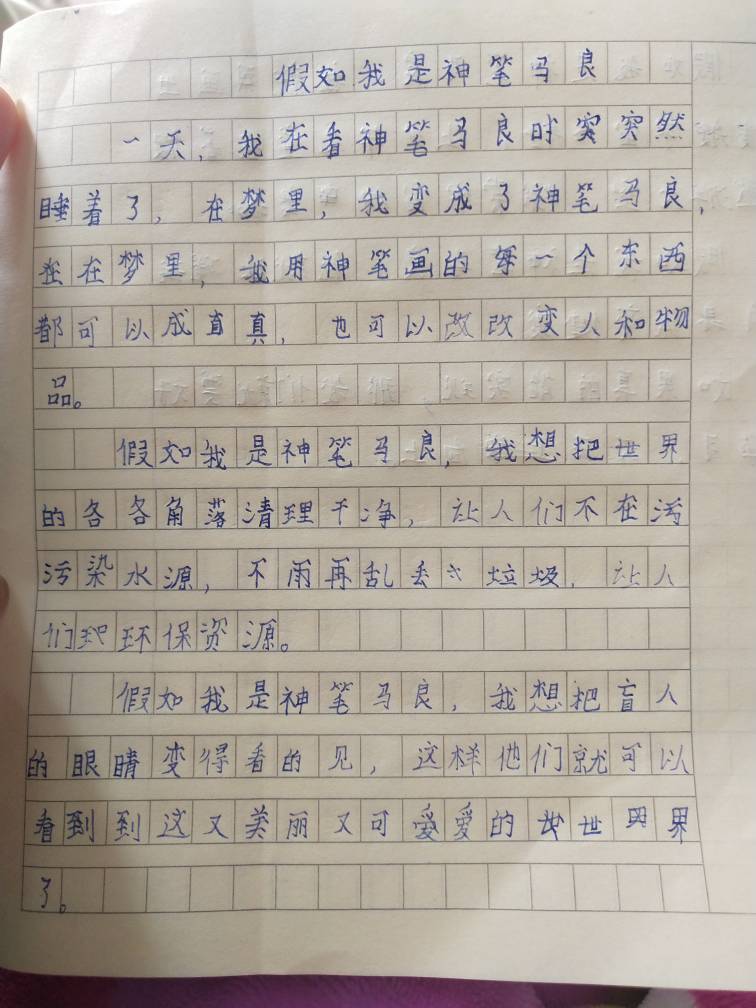 假如我是神笔马良
一天，我在看神笔马良时突突然
睡着了，在梦里，我变成了神笔马良，
在在梦里，我用神笔画的每一个东西
都可以成直真，也可以改改变人和物
品。
假如我是神笔马良，我想把世界
的各各角落清理干净，让人们不在污
污染水源，不雨再乱丢垃圾，让人
们把环保资源。
假如我是神笔马良，我想把盲人
的眼睛变得看的见，这样他们就可以
看到到这又美丽又可爱爱的世世界界
了。